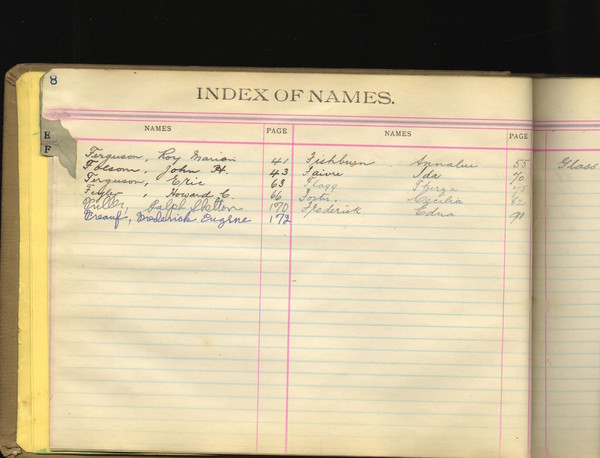 8
INDEX OF NAMES.
E
F
NAMES PAGE NAMES PAGE
Ferguson, Roy Marion 41 Fishburn Annalue 55 Glass
Folsom, John H. 43 Faivre Ida 70
Ferguson, Eric 63 Flagg
Howard C. 66 Foster, Cecilia
Fuller, Ralph Skelton 170 Frederick Edna 90
Greauf, Frederick Eugene 172